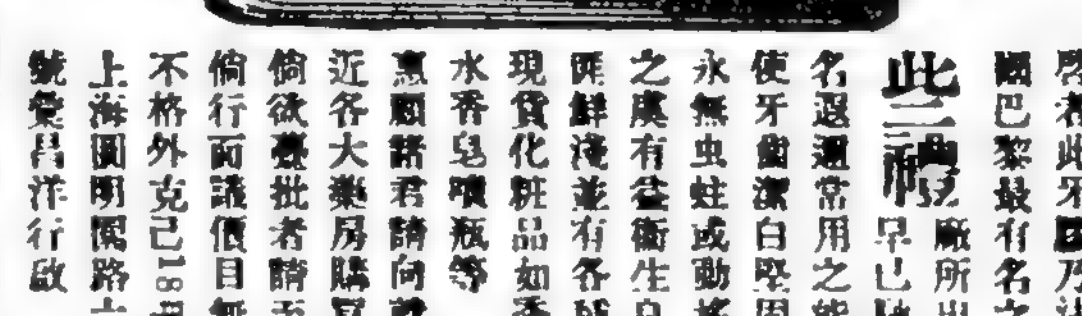 啓者此牙
國巴黎最有名
此三禮
廠所出
早已
名遐邇常用之能
使牙齒潔白堅固
永無虫蛀或動搖
之虞有益衛生
匪鮮淺並有各
現貨化粧品如香
水香皂噴瓶等
惠顧諸君請向
近各大藥房購
倘欲躉批者請
倘行面議價目無
不格外克己18
上海圓明園路
號愛昌洋行啟